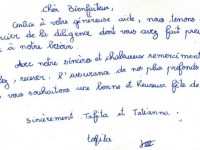 Chèr Bienfaiteur,
Grâce à votre généreuse aide, nous tenons
rcier de la diligence dont vous avez fait preuv
à notre besoin.
Avec notre sincère et chaleureux remerciment
ez, recevez, l'assurance de nos plus profonds
vous souhaitons une bonne et heureuse fête de
sincèrement Tafita et Tatianna.
tafita